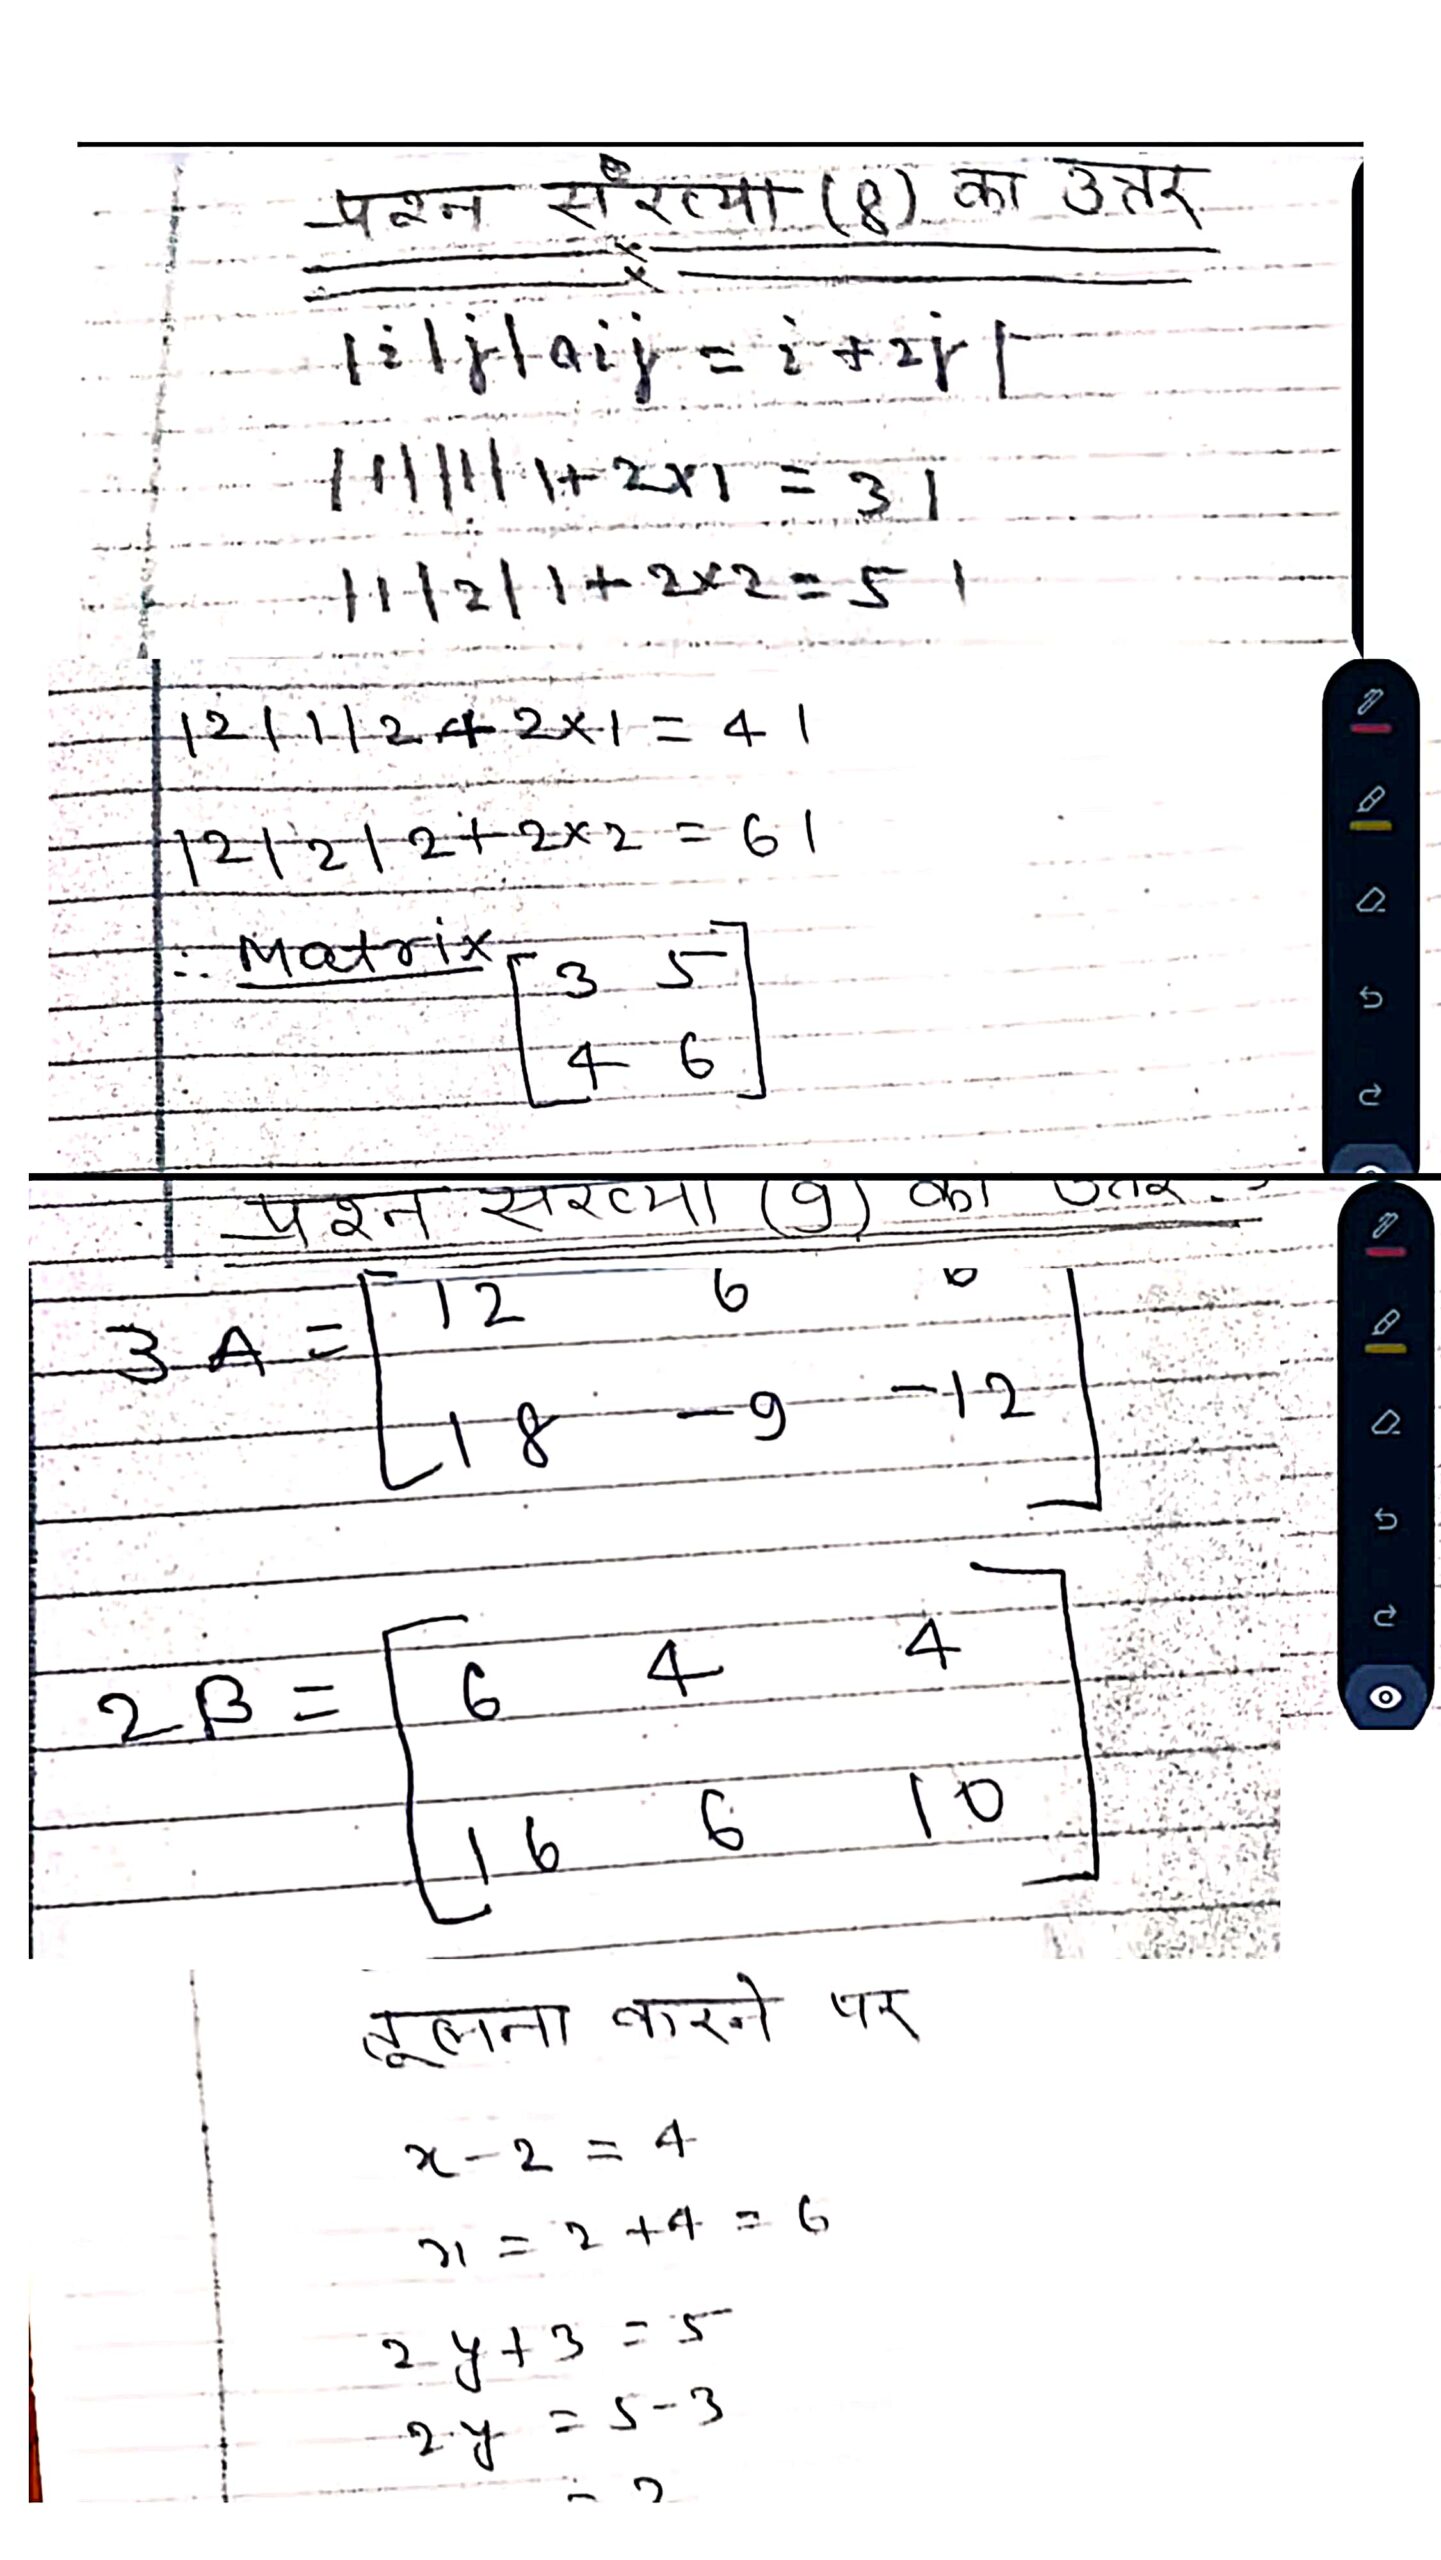 प्रश्न संख्या (8) का उत्तर
|i|j|aij = i + 2j|
|1|1|1+2×1 = 3|
|1|2|1+2×2=5|
|2|1|2+2×1=4|
|2|2|2+2×2=6|
∴ Matrix [3 5
4 6]
प्रश्न संख्या (9) का उत्तर
3A = [12 6 6
18 -9 -12]
2B = [6 4 4
16 6 10]
तूलना करने पर
x-2 = 4
x = 2+4 = 6
2y+3 = 5
2y = 5-3
= 2